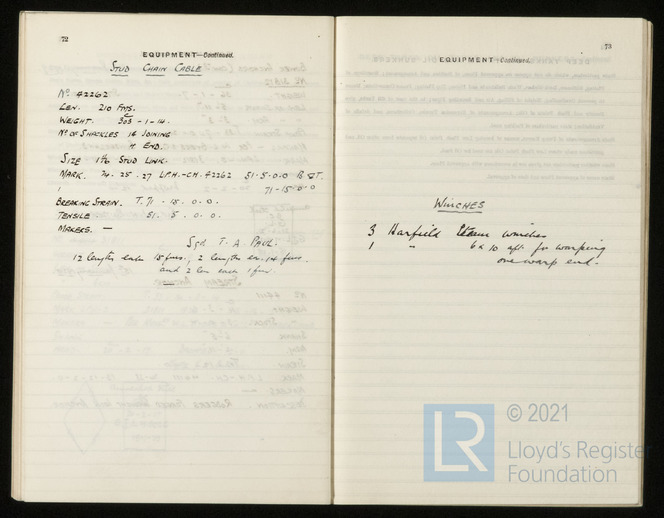 72
EQUIPMENT—Continued.
STUD CHAIN CABLE
No 42262
LEN. 210 FMS.
WEIGHT. 303 - 1 - 14.
No OF SHACKLES 16 JOINING
4 END.
SIZE STUD LINK.
MARK. 74 . 25 . 27 L.P.H.-CH. 42262 51.5.0.0 B & T.
71-15-0-0
BREAKING STRAIN. T. 71 . 15 . 0 . 0.
TENSILE 51 . 5 . 0 . 0.
MAKERS. —
Sgd T. A PAUL.
12 lengths each 15 fms., 2 lengths ea. 14 fms.
and 2 len each 1 fm.
73
EQUIPMENT—Continued.
WINCHES
3 Harfield steam winches
1 " 6 x 10 aft for warping
one warp end.
© 2021
LR
Lloyd's Register
Foundation